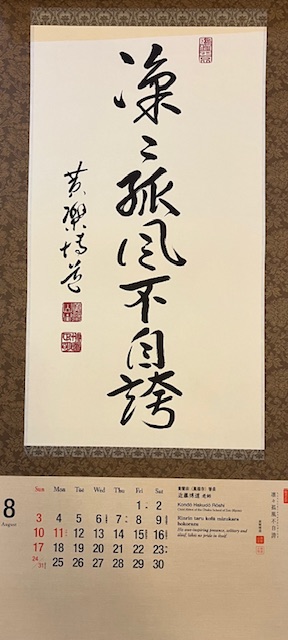 凛々孤風不自誇
黄檗博道
8
August
Sun Mon Tue Wed Thu Fri Sat
1 2
3 4 5 6 7 8 9
10 11 12 13 14 15 16
17 18 19 20 21 22 23
24/31 25 26 27 28 29 30
近藤博道 老師
Kondō Hakudō Rōshi
Rinrin taru kofū mizukara
hokorazu
His awe-inspiring presence, solitary and
aloof, takes no pride in itself
凛々孤風不自誇